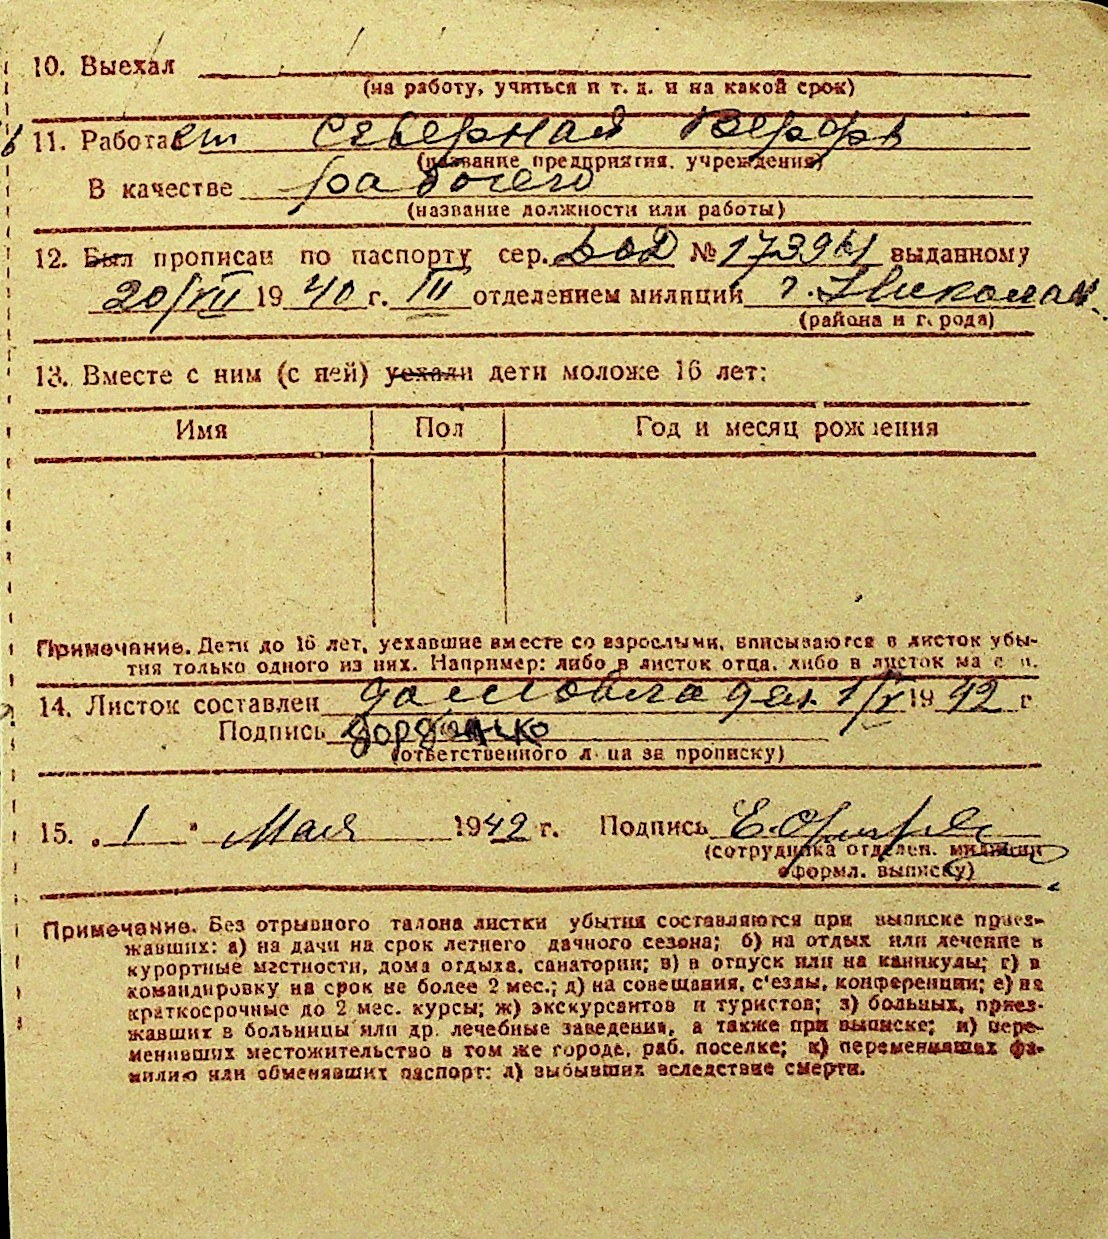 10. Выехал
(на работу, учиться и т. д. и на какой срок)
11. Работает Северная Верфь
(название предприятия, учреждения)
В качестве рабочего
(название должности или работы)
12. Был прописан по паспорту сер. № выданному
20/VII 1940 г. III отделением милиции г. Николаев
(района и города)
13. Вместе с ним (с ней) уехали дети моложе 16 лет:
Имя Пол Год и месяц рождения
Примечание. Дети до 16 лет, уехавшие вместе со взрослыми, вписываются в листок убы-
тия только одного из них. Например: либо в листок отца, либо в листок ма
14. Листок составлен домовладел. 1/V 1942 г
Подпись
(ответственного лица за прописку)
15. „1" Мая 1942 г. Подпись
(сотрудника отделен. милиции
оформл. выписку)
Примечание. Без отрывного талона листки убытия составляются при выписке приез-
жавших: а) на дачи на срок летнего дачного сезона; б) на отдых или лечение в
курортные местности, дома отдыха, санатории; в) в отпуск или на каникулы; г) в
командировку на срок не более 2 мес.; д) на совещания, с'езды, конференции; е) на
краткосрочные до 2 мес. курсы; ж) экскурсантов и туристов; з) больных, приез-
жавших в больницы или др. лечебные заведения, а также при выписке; и) пере-
менивших местожительство в том же городе, раб. поселке; к) переменивших фа-
милию или обменявших паспорт; л) выбывших вследствие смерти.